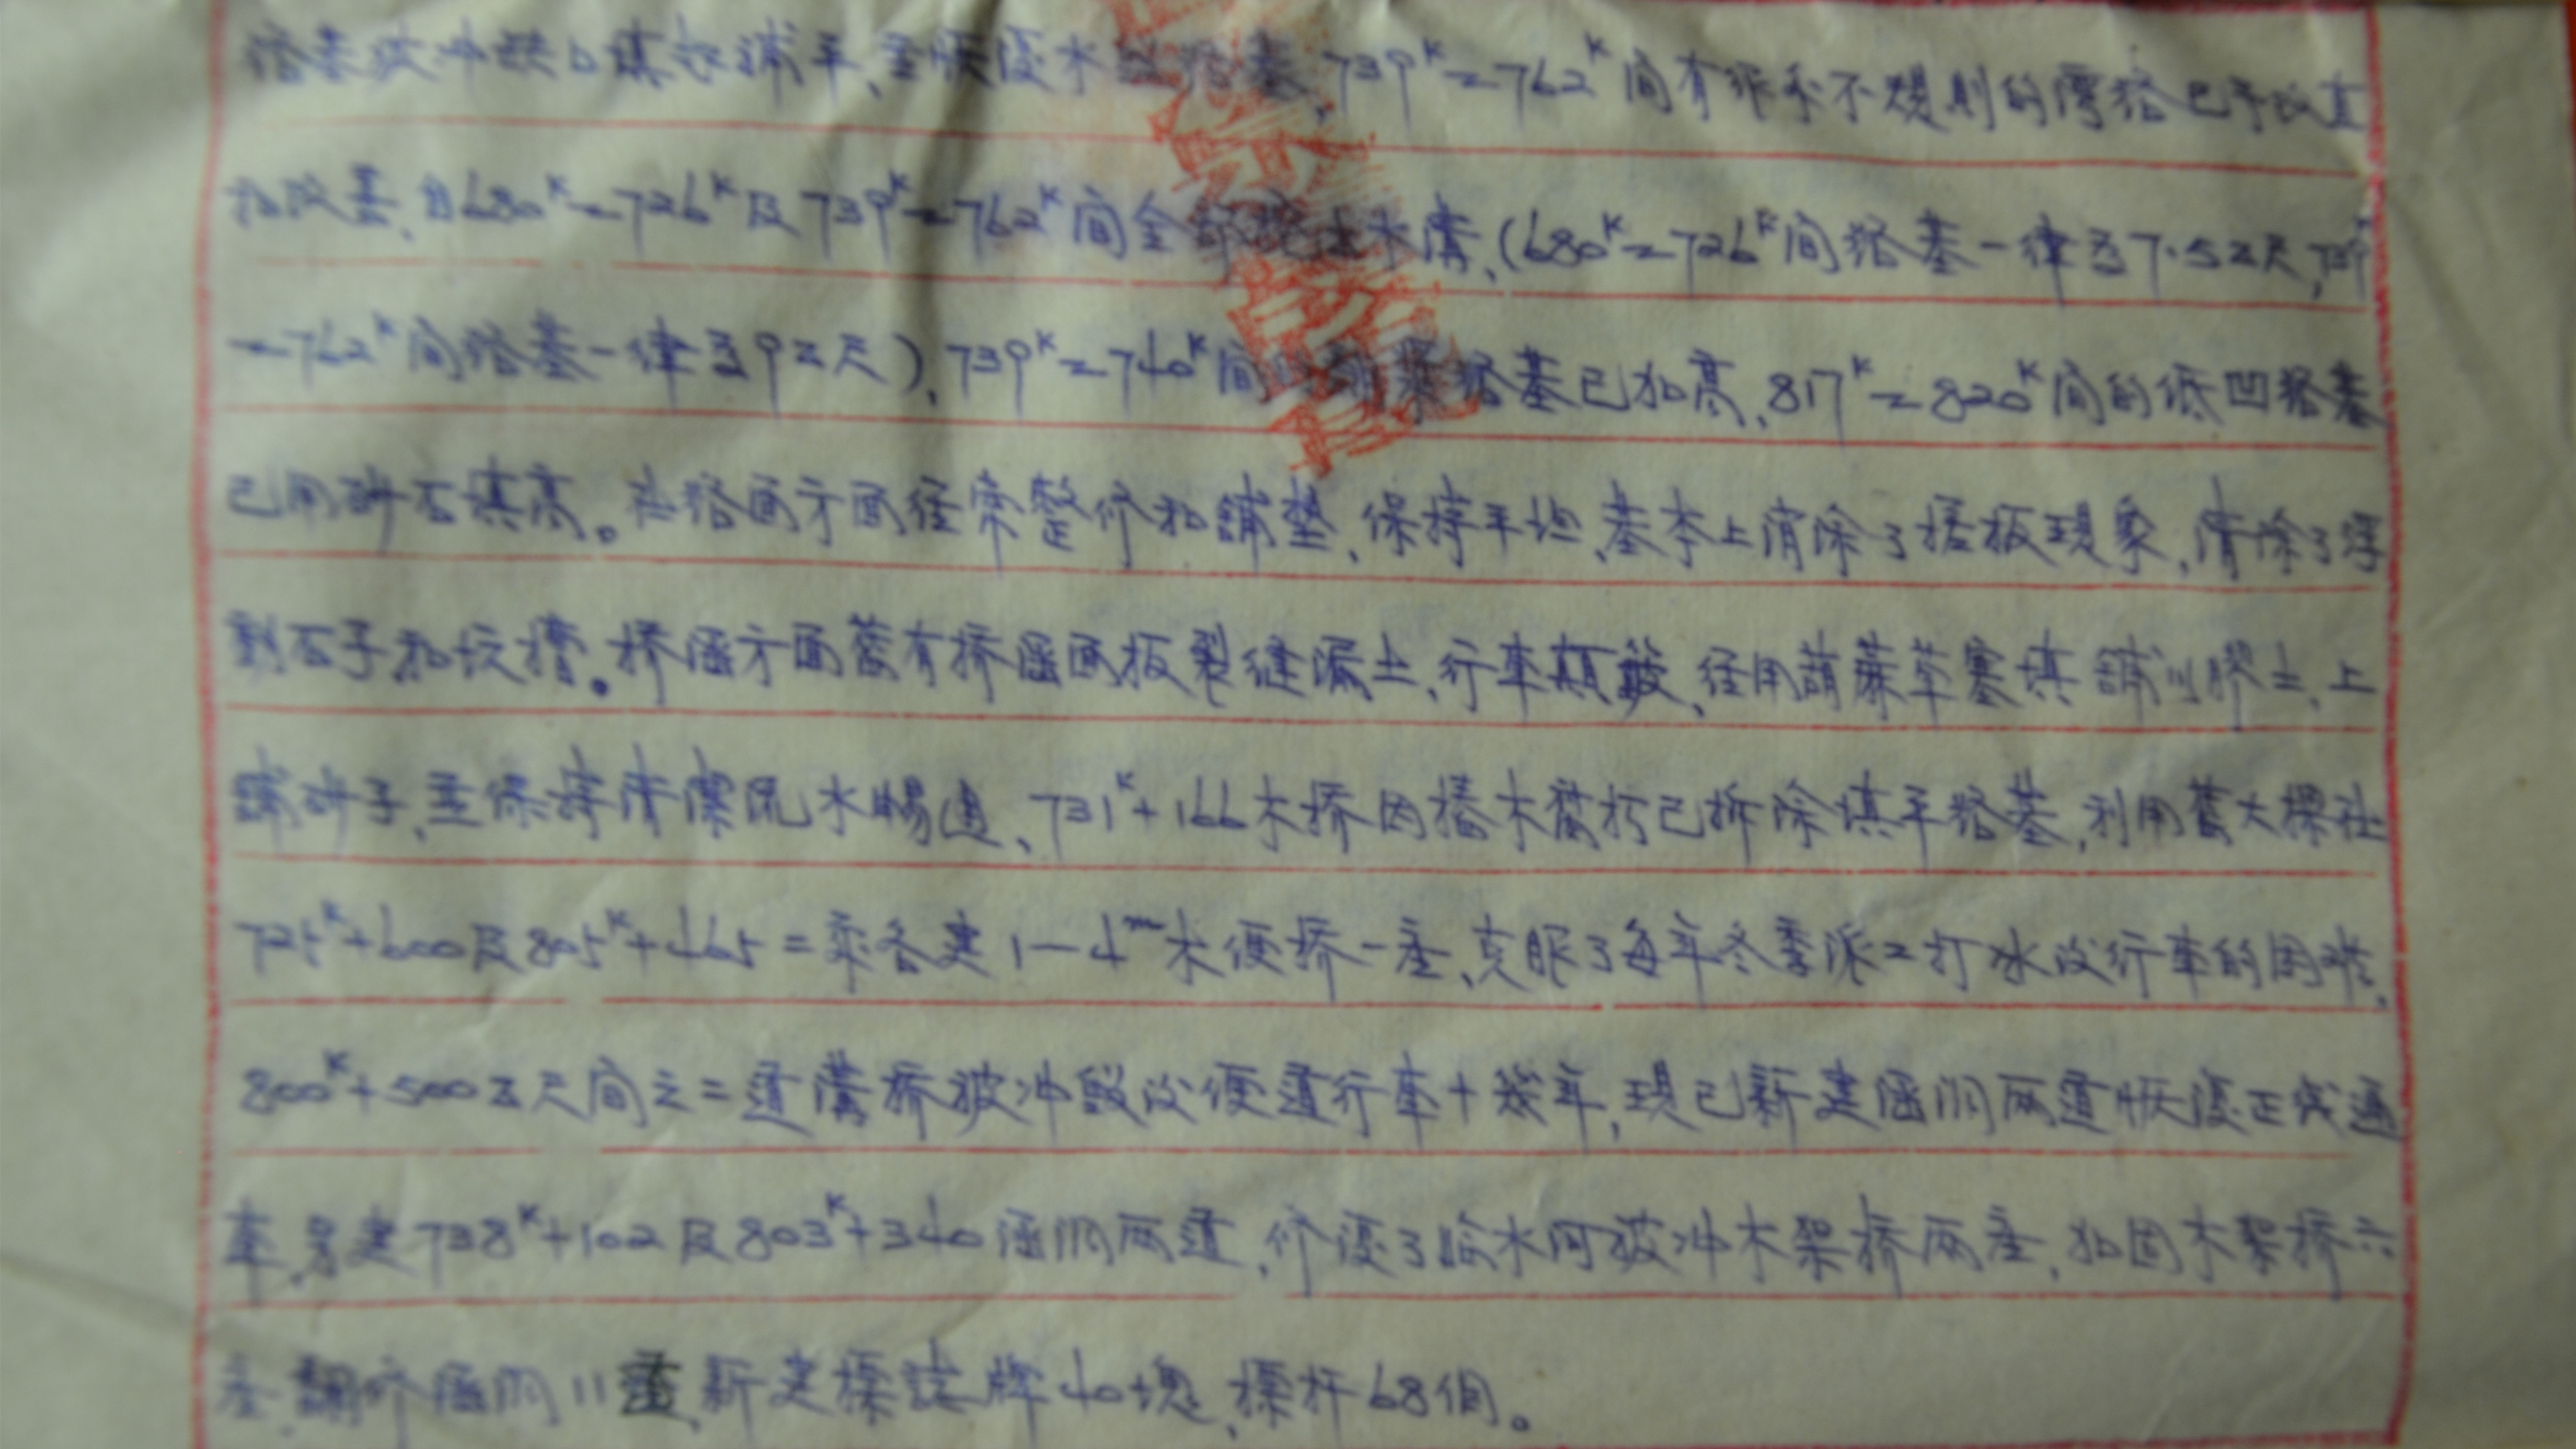 路基被冲缺口填起補平、並恢復水 路基,739ᴷ=762ᴷ间有 不規則的彎路已予改直
和改善、自680ᴷ=726ᴷ及739ᴷ=762ᴷ间全部挖 水溝、(680ᴷ=726ᴷ间路基一律为7.5公尺,739ᴷ
=762ᴷ间路基一律为9公尺),739ᴷ=740ᴷ间 路基已加高,817ᴷ=820ᴷ间的低凹路基
已用砂石填高。在路面方面经常整修和鋪墊,保持平坦、基本上消除了搓板現象,清除了浮
動石子和坑槽。桥涵方面旧有桥涵面板裂缝漏土,行車颠簸,经用葫蘆草塞填鋪以膠土,上
鋪砂子,並保持清潔流水暢通、731ᴷ+166木桥因樁木腐朽已拆除填平路基,利用舊大樑在
725ᴷ+600及805ᴷ+465=郊各建1—4ᵐ木便桥一座、克服了每年冬季派工打冰改行車的困难,
800ᴷ+500公尺间之=道舊桥被冲毁改便道行車十幾年,現已新建涵洞两道恢復正线通
車,另建738ᴷ+102及803ᴷ+340涵洞两道,修復了 水河被冲木架桥两座,加固木架桥六
座,翻修涵洞11道,新建標誌牌40塊,標杆68個。